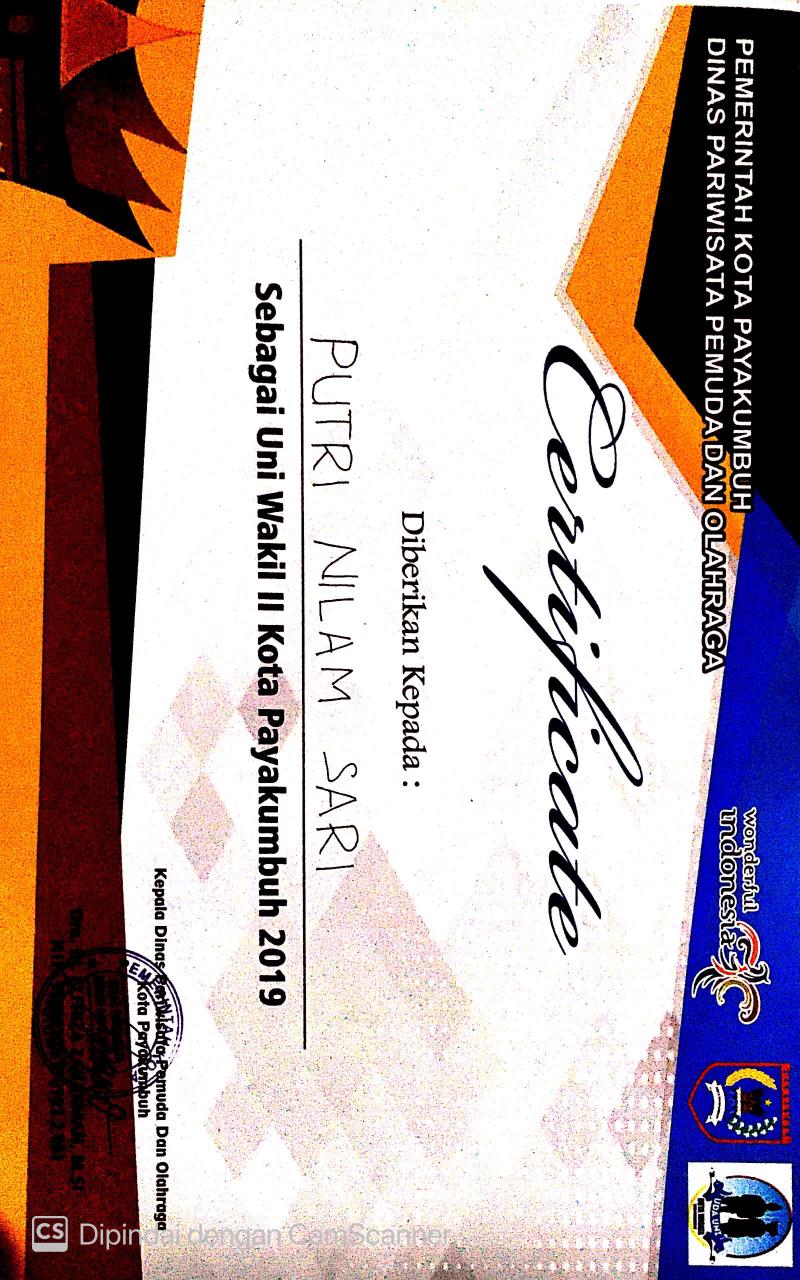 PEMERINTAH KOTA PAYAKUMBUH
DINAS PARIWISATA PEMUDA DAN OLAHRAGA
wonderful
indonesia
UDA UNI
Certificate
Diberikan Kepada :
PUTRI NILAM SARI
Sebagai Uni Wakil II Kota Payakumbuh 2019
Kepala Dinas Pariwisata Pemuda Dan Olahraga
Kota Payakumbuh
M.SI
CS Dipindai dengan CamScanner